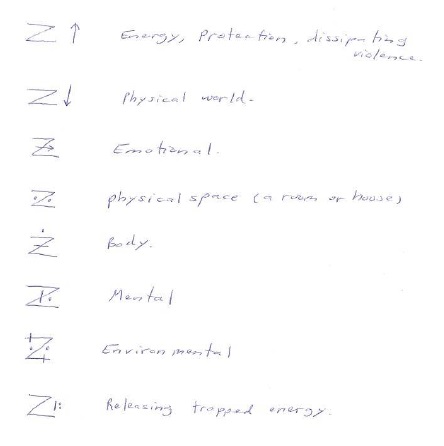 Z ↑ Energy, Protection, dissipating
violence.
Z ↓ Physical world.
Z Emotional.
Z physical space (a room or house)
Ż Body.
Z Mental
Z Environmental
Z|: Releasing trapped energy.